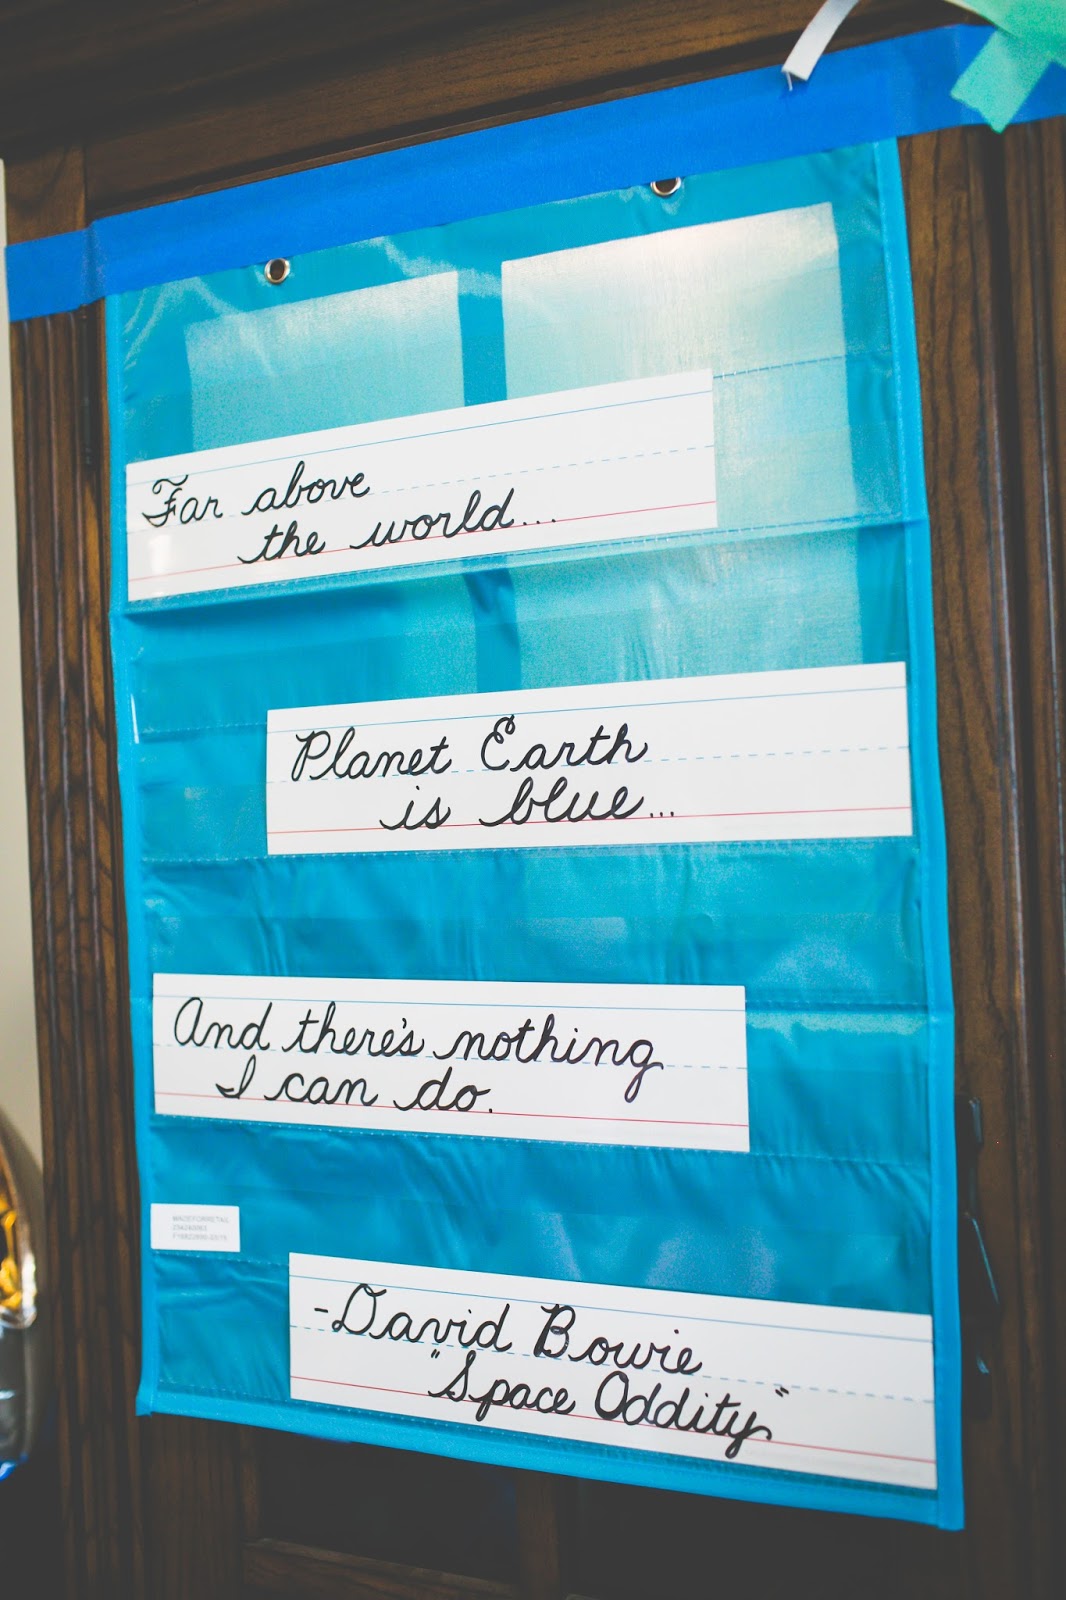 Far above
the world...
Planet Earth
is blue...
And there's nothing
I can do.
MADEFORRETAIL
-David Bowie
"Space Oddity"